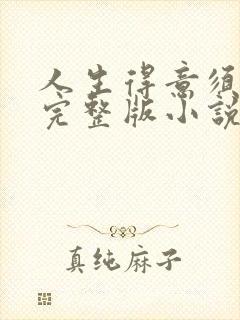 人生得意须
完整版小說
真纯麻子